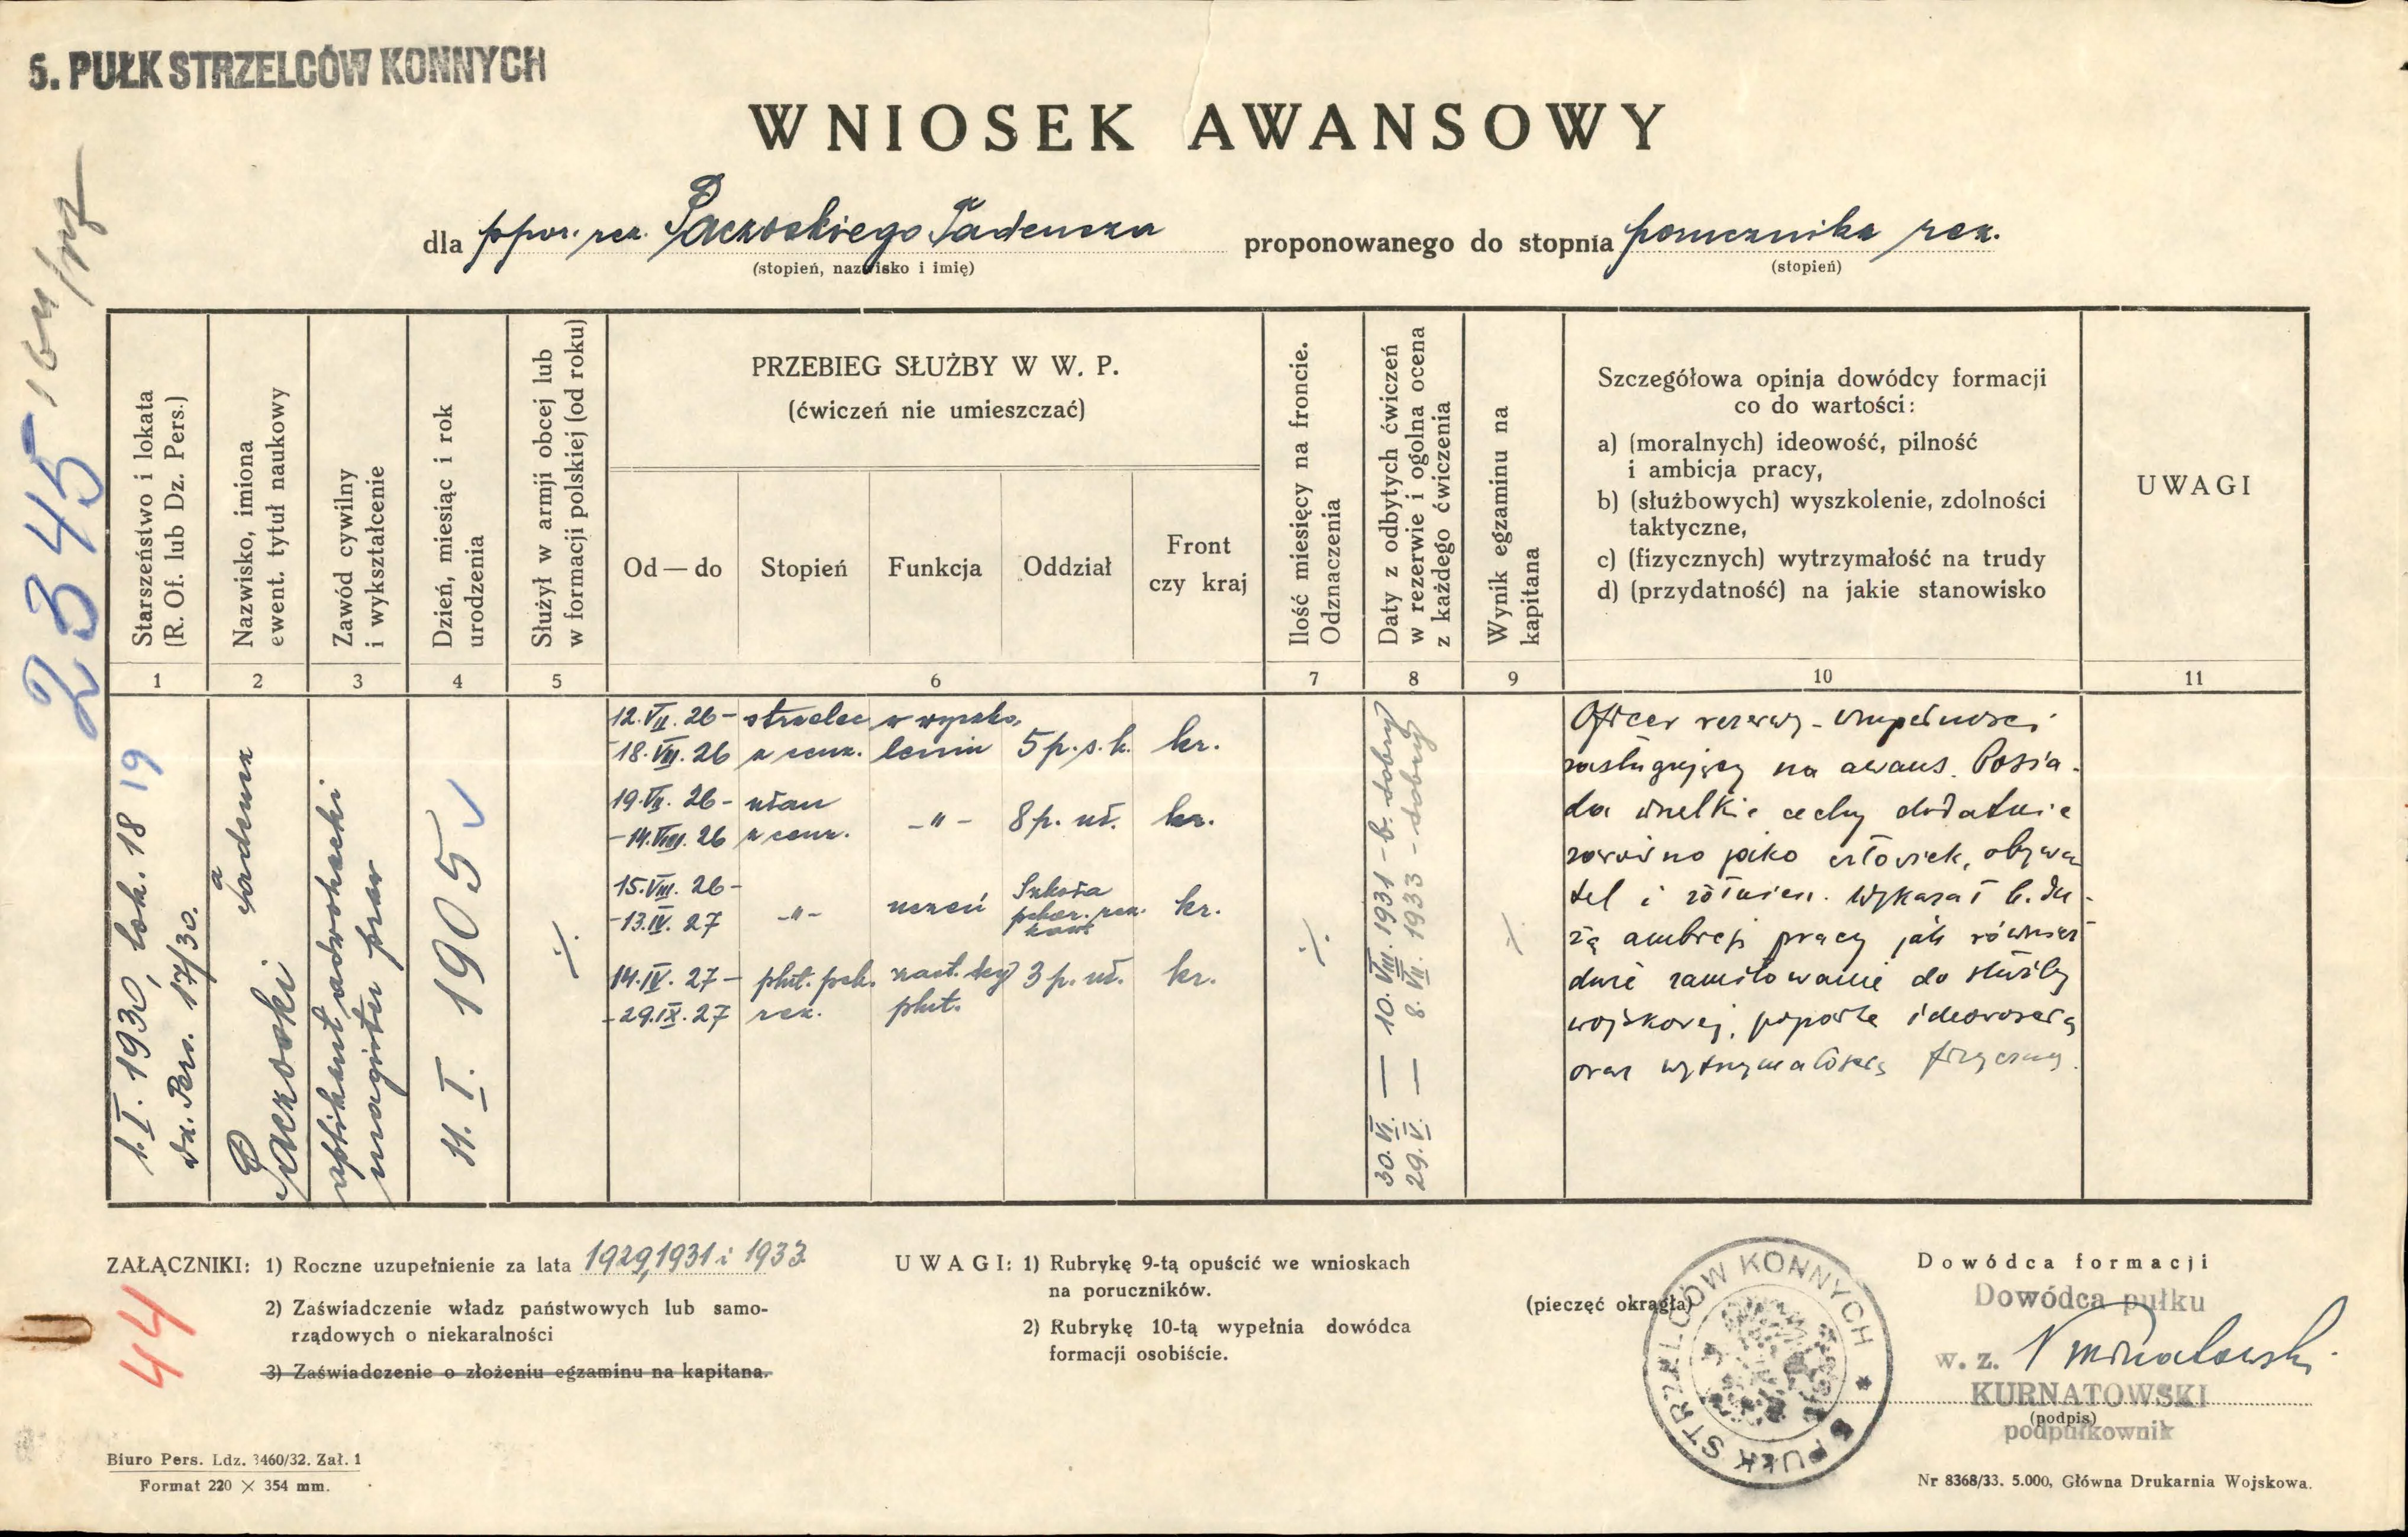 5. PUŁK STRZELCÓW KONNYCH
WNIOSEK AWANSOWY
dla ppor. rez. Paczoskiego Tadeusza proponowanego do stopnia porucznika rez.
(stopień, nazwisko i imię)
(stopień)
2345
Starszeństwo i lokata
(R. Of. lub Dz. Pers.)
Nazwisko, imiona
ewent. tytuł naukowy
Zawód cywilny
i wykształcenie
Dzień, miesiąc i rok
urodzenia
Służył w armji obcej lub
w formacji polskiej (od roku)
PRZEBIEG SŁUŻBY W W. P.
(ćwiczeń nie umieszczać)
Od — do
Stopień
Funkcja
Oddział
Front
czy kraj
Ilość miesięcy na froncie.
Odznaczenia
Daty z odbytych ćwiczeń
w rezerwie i ogolna ocena
z każdego ćwiczenia
Wynik egzaminu na
kapitana
Szczegółowa opinja dowódcy formacji
co do wartości:
a) (moralnych) ideowość, pilność
i ambicja pracy,
b) (służbowych) wyszkolenie, zdolności
taktyczne,
c) (fizycznych) wytrzymałość na trudy
d) (przydatność) na jakie stanowisko
UWAGI
1 2 3 4 5 6 7 8 9 10 11
1. I. 1930, lok. 18 19
Dz. Pers. 17/30.
Paczoski Tadeusz
aplikant adwokacki
magister praw
11. I. 1905
·/·
12. VII. 26 – strzelec w wyszko-
-18. VII. 26 z cenz. leniu 5 p. s. k. kr.
19. VII. 26 – ułan
-14. VIII. 26 z cenz. -"- 8 p. uł. kr.
15. VIII. 26 –
-13. IV. 27 -"- uczeń Szkoła
pchor. rez.
kaw. kr.
14. IV. 27 – plut. pch. zast. dcy 3 p. uł. kr.
-29. IX. 27 rez. plut.
·/·
30. VI. — 10. VIII. 1931 - b. dobry
29. V. — 8. VII. 1933 - dobry
·/·
Oficer rezerwy - w zupełności
zasługujący na awans. Posia-
da wszelkie cechy dodatnie
zarówno jako człowiek, obywa
tel i żołnierz. Wykazał b. du-
żą ambicję pracy jak również
duże zamiłowanie do służby
wojskowej, poparte ideowością
oraz wytrzymałością fizyczną.
ZAŁĄCZNIKI: 1) Roczne uzupełnienie za lata 1929, 1931 i 1933
2) Zaświadczenie władz państwowych lub samo-
rządowych o niekaralności
3) Zaświadczenie o złożeniu egzaminu na kapitana.
44
UWAGI: 1) Rubrykę 9-tą opuścić we wnioskach
na poruczników.
2) Rubrykę 10-tą wypełnia dowódca
formacji osobiście.
(pieczęć okrągła)
5 PUŁK STRZELCÓW KONNYCH *
Dowódca formacji
Dowódca pułku
w. z. Kurnatowski
KURNATOWSKI
(podpis)
podpułkownik
Biuro Pers. Ldz. 3460/32. Zał. 1
Format 220 × 354 mm.
Nr 8368/33. 5.000, Główna Drukarnia Wojskowa.